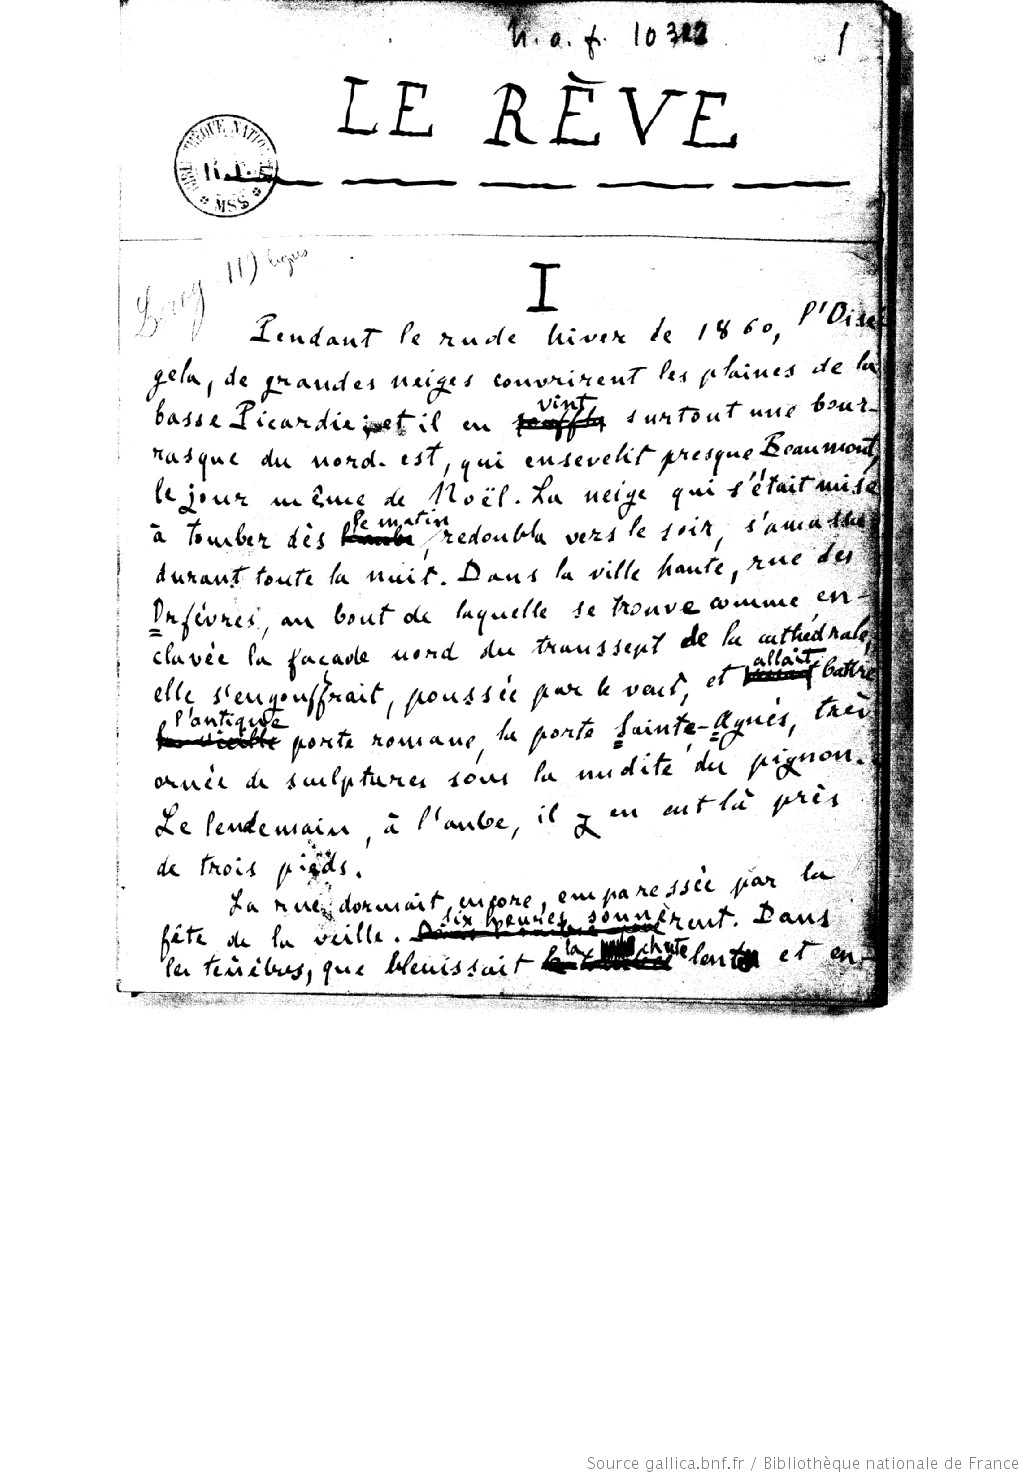 n. a. f. 10323
1
LE RÈVE
BIBLIOTHÈQUE NATIONALE
R.F.
MSS
Leroy 119 lignes
I
Pendant le rude hiver de 1860, l'Oise
gela, de grandes neiges couvrirent les plaines de la
vint
basse Picardie; et il en souffla surtout une bour-
rasque du nord-est, qui ensevelit presque Beaumont,
le jour même de Noël. La neige qui s'était mise
le matin
à tomber dès l'aube, redoubla vers le soir, s'amassa
durant toute la nuit. Dans la ville haute, rue des
Orfèvres, au bout de laquelle se trouve comme en-
clavée la façade nord du transsept de la cathédrale,
allait
elle s'engouffrait, poussée par le vent, et battre
l'antique
la vieille porte romane, la porte Sainte-Agnès, très
ornée de sculptures sous la nudité du pignon.
Le lendemain, à l'aube, il y en eut là près
de trois pieds.
La rue dormait encore, emparessée par la
six heures sonnèrent. Dans
fête de la veille.
la chute
les ténèbres, que bleuissait lente et en-
Source gallica.bnf.fr / Bibliothèque nationale de France